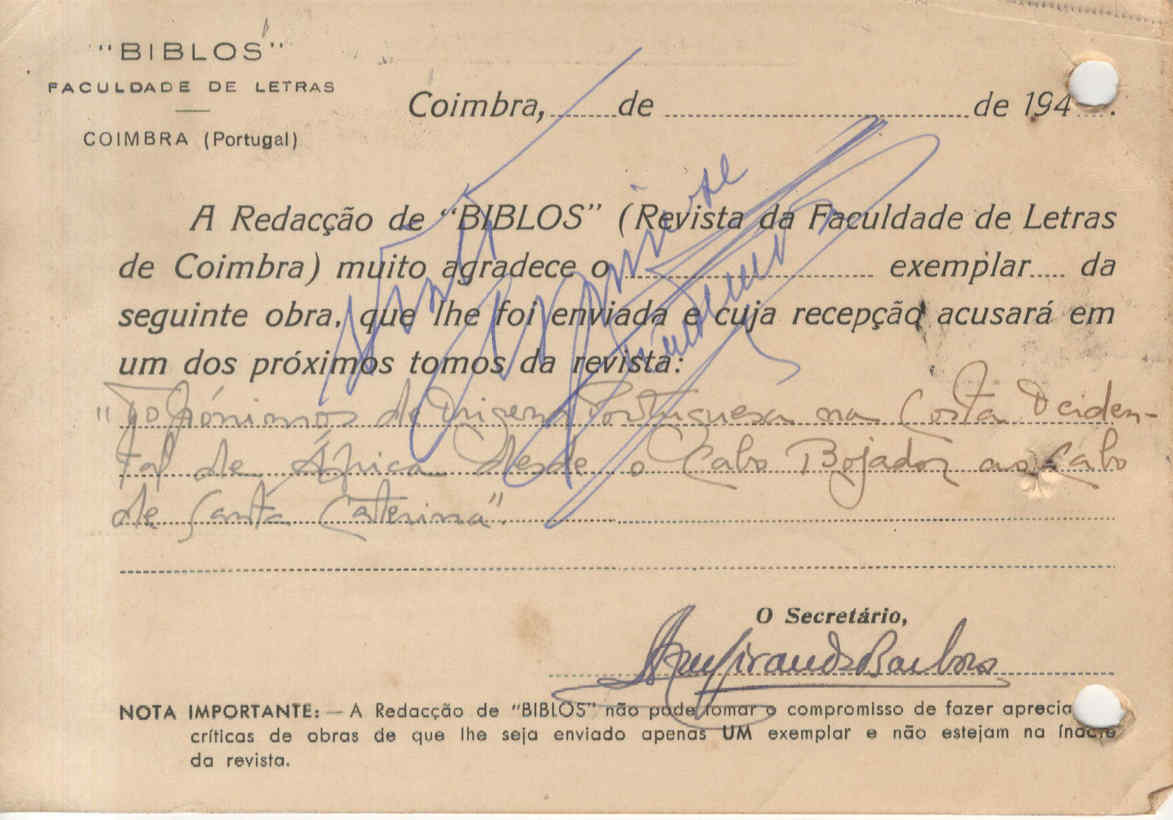 "BIBLOS"
FACULDADE DE LETRAS
COIMBRA (Portugal)
Coimbra, ...... de .............................. de 194 ....
A Redacção de "BIBLOS" (Revista da Faculdade de Letras
de Coimbra) muito agradece o .............................. exemplar.... da
seguinte obra, que lhe foi enviada e cuja recepção acusará em
um dos próximos tomos da revista:
"Topónimos de Origem Portuguesa na Costa Ociden-
tal de África desde o Cabo Bojador ao Cabo
de Santa Caterina".
O Secretário,
Miranda Barbosa
NOTA IMPORTANTE: — A Redacção de "BIBLOS" não pode tomar o compromisso de fazer aprecia
críticas de obras de que lhe seja enviado apenas UM exemplar e não estejam na índole
da revista.